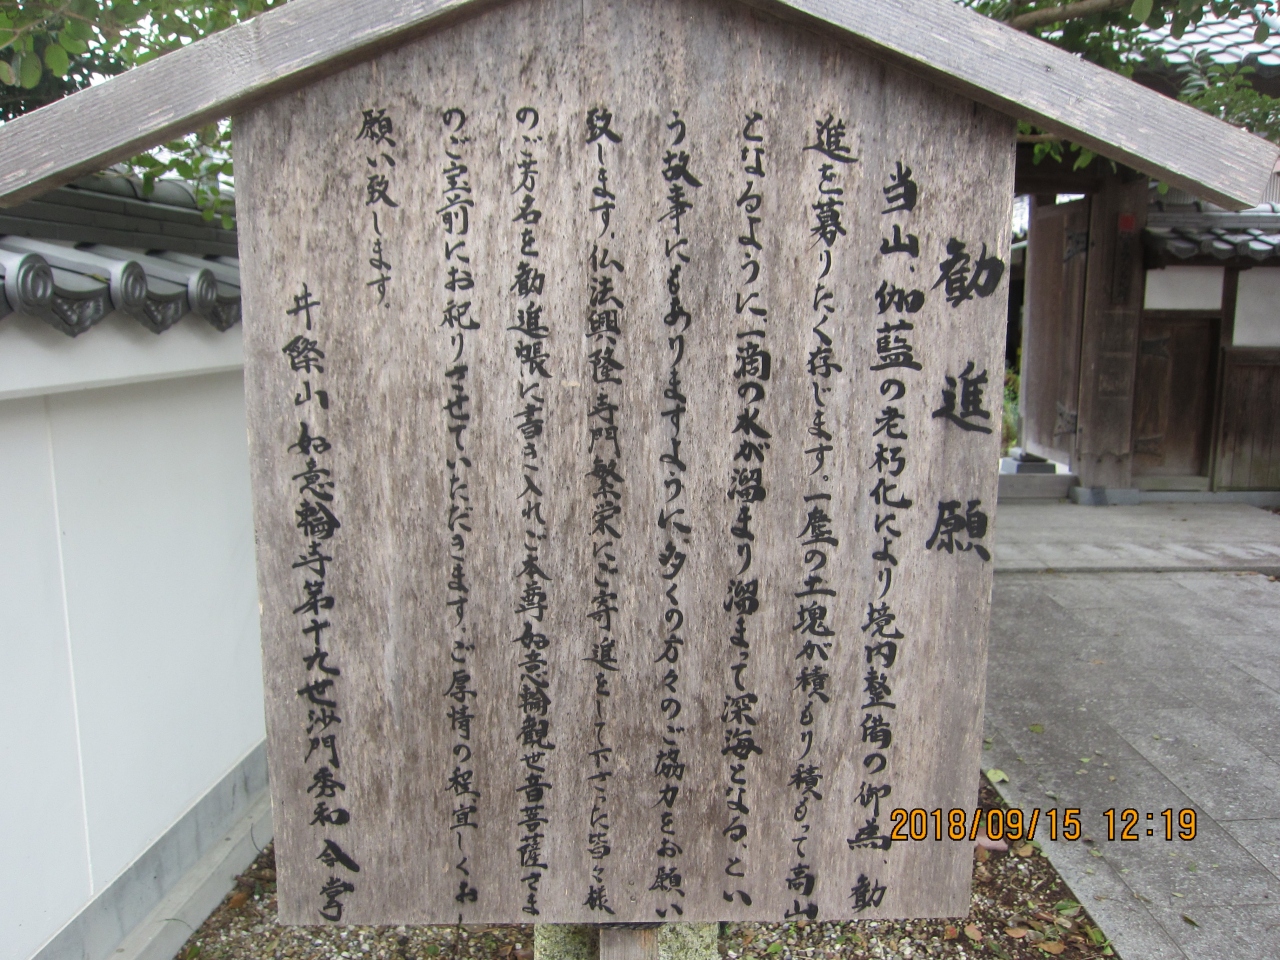 勧進願
当山、伽藍の老朽化により境内整備の御為、勧
進を募りたく存じます。一塵の土塊が積もり積もって高山
となるように一滴の水が溜まり溜まって深海となる、とい
う故事にもありますように、多くの方々のご協力をお願い
致します。仏法興隆寺門繁栄にご寄進をして下さった皆々様
のご芳名を勧進帳に書き入れご本尊如意輪観世音菩薩さま
のご宝前にお祀りさせていただきます。ご厚情の程宜しくお
願い致します。
井 山如意輪寺第十九世沙門秀和 合掌
2018/09/15 12:19